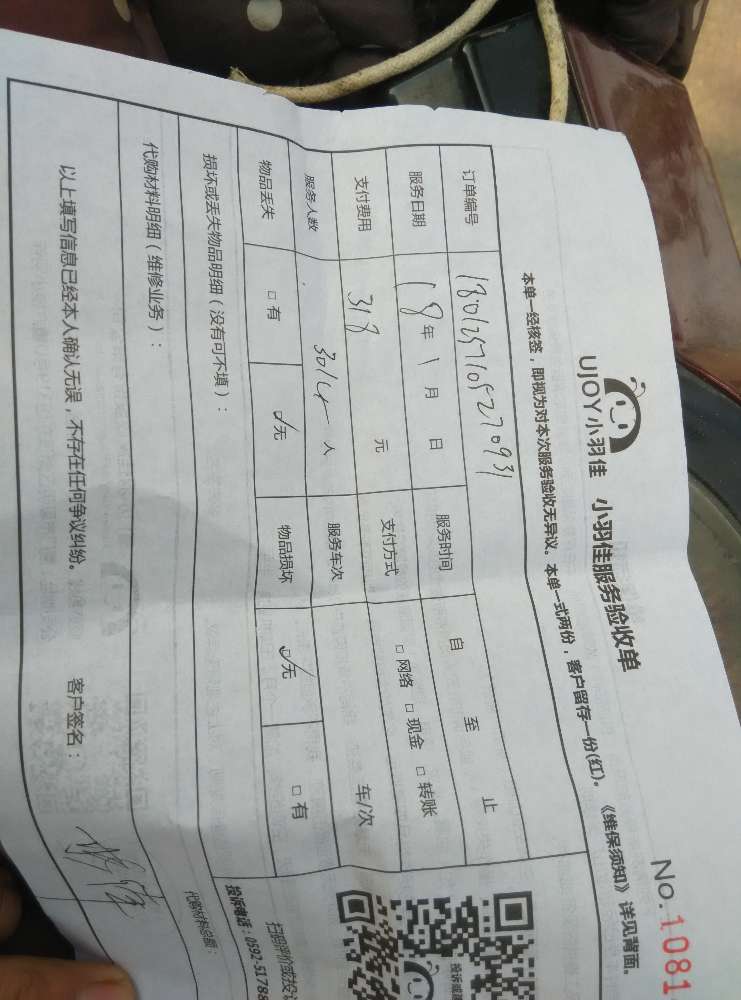 No.1081
UJOY小羽佳 小羽佳服务验收单
本单一经核签,即视为对本次服务验收无异议。本单一式两份,客户留存一份(红)。《维保须知》详见背面。
订单编号 1801257105270931
服务日期 18年1月 日 服务时间 自 至 止
支付费用 318 元 支付方式 □网络 □现金 □转账
服务人数 人 服务车次 车/次
物品丢失 □有 ☑无 物品损坏 ☑无 □有
损坏或丢失物品明细(没有可不填):
代购材料明细(维修业务): 代购材料总额:
以上填写信息已经本人确认无误,不存在任何争议纠纷。 客户签名:
扫码评价或投
投诉电话:0592-51788